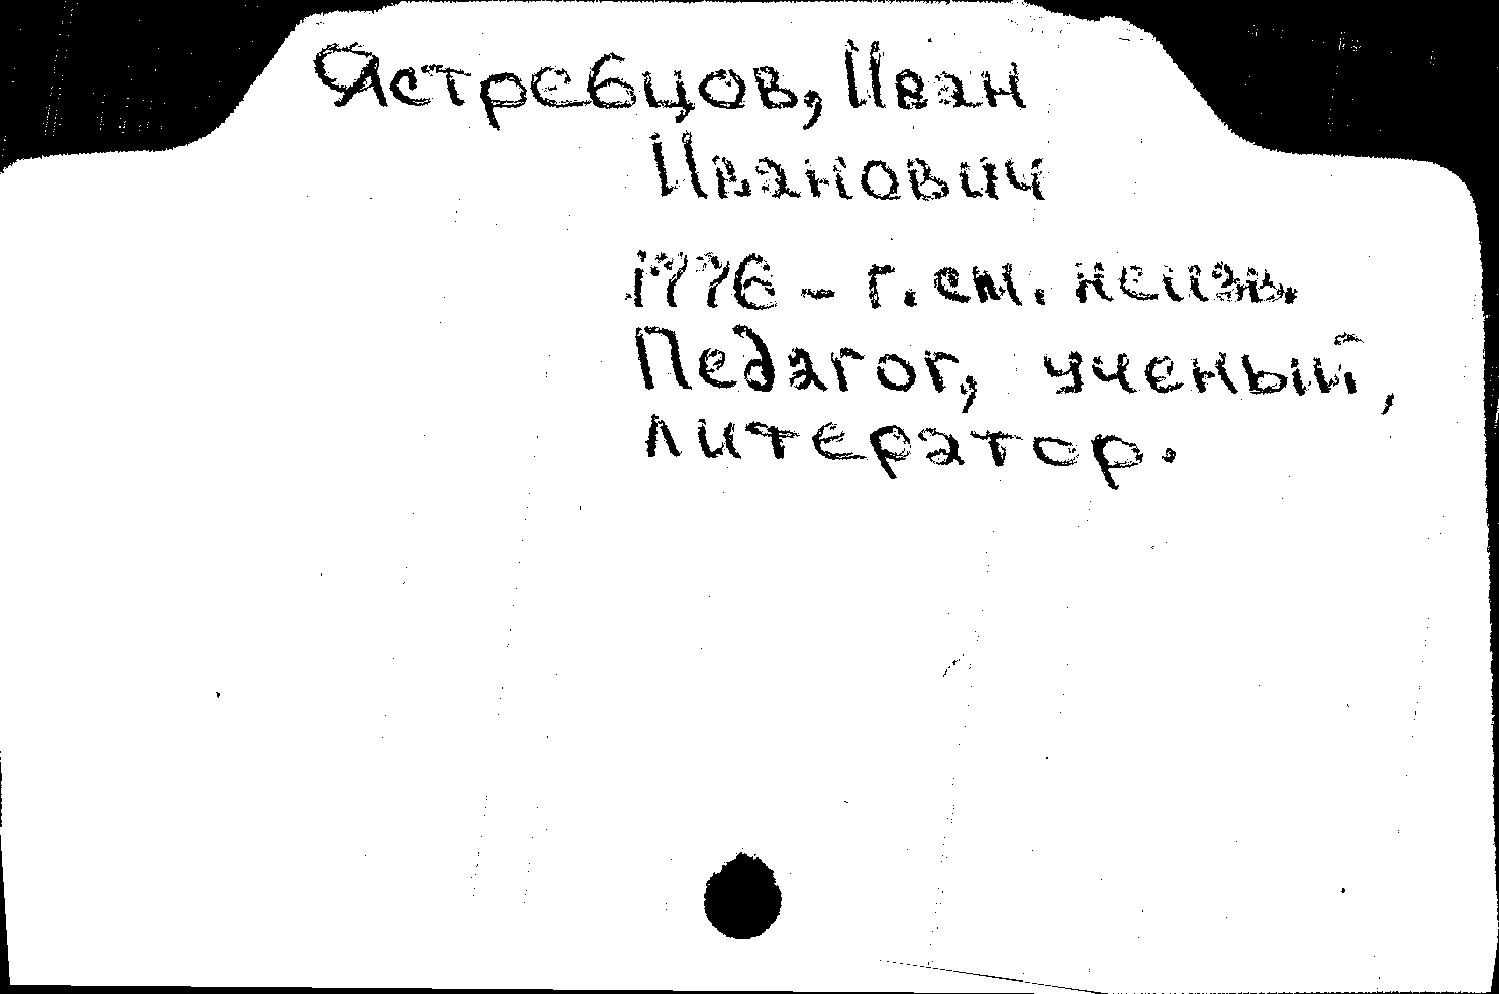 Ястребцов, Иван
Иванович
1776 - г. см. неизв.
Педагог, ученый,
литератор.